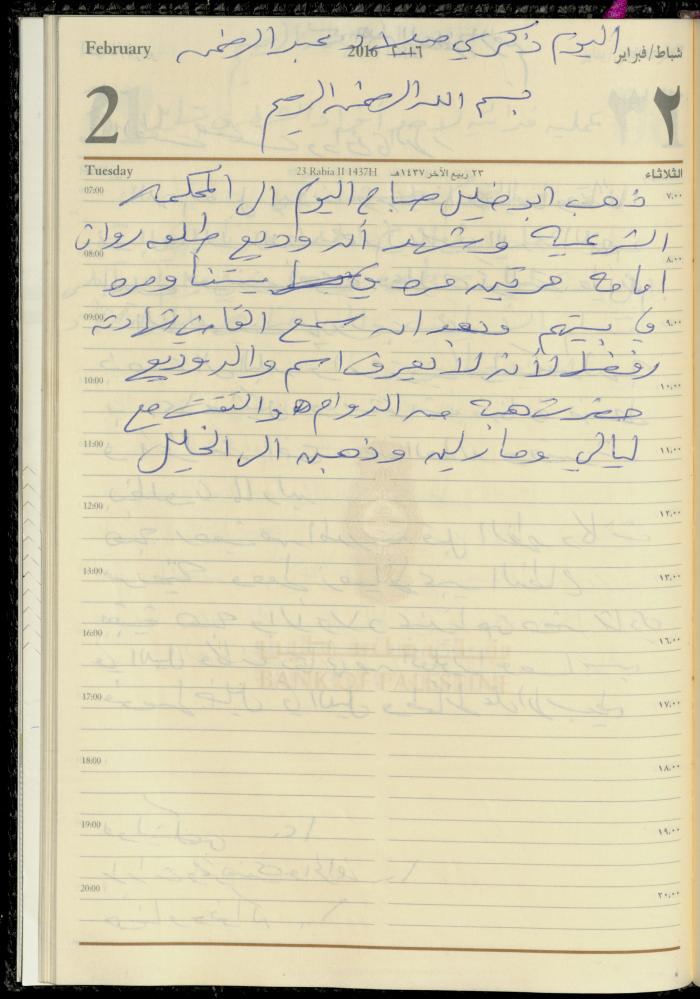 اليوم ذكرى ميلاد عبد الرحمن
February 2016 ٢٠١٦ شباط/فبراير
بسم الله الرحمن الرحيم
2 ٢
Tuesday 23 Rabia II 1437H ٢٣ ربيع الآخر ١٤٣٧هـ الثلاثاء
07:00 ذهب ابو خليل صباح اليوم الى المحكمه ٧,٠٠
الشرعية وشهد أن وديع طلعه روان
08:00 ٨,٠٠
امامه مرتين مره في بيتنا ومره
09:00 في بيتهم وبعد ان سمع القاضي شهادته ٩,٠٠
رفضها لأنه لا يعرف اسم والد وديع
10:00 ١٠,٠٠
حضرت هبه من الدوام والتقت مع
11:00 ليالي ومارلين وذهبن الى الخليل ١١,٠٠
12:00 ١٢,٠٠
13:00 ١٣,٠٠
16:00 ١٦,٠٠
BANK OF PALESTINE
17:00 ١٧,٠٠
18:00 ١٨,٠٠
19:00 ١٩,٠٠
20:00 ٢٠,٠٠